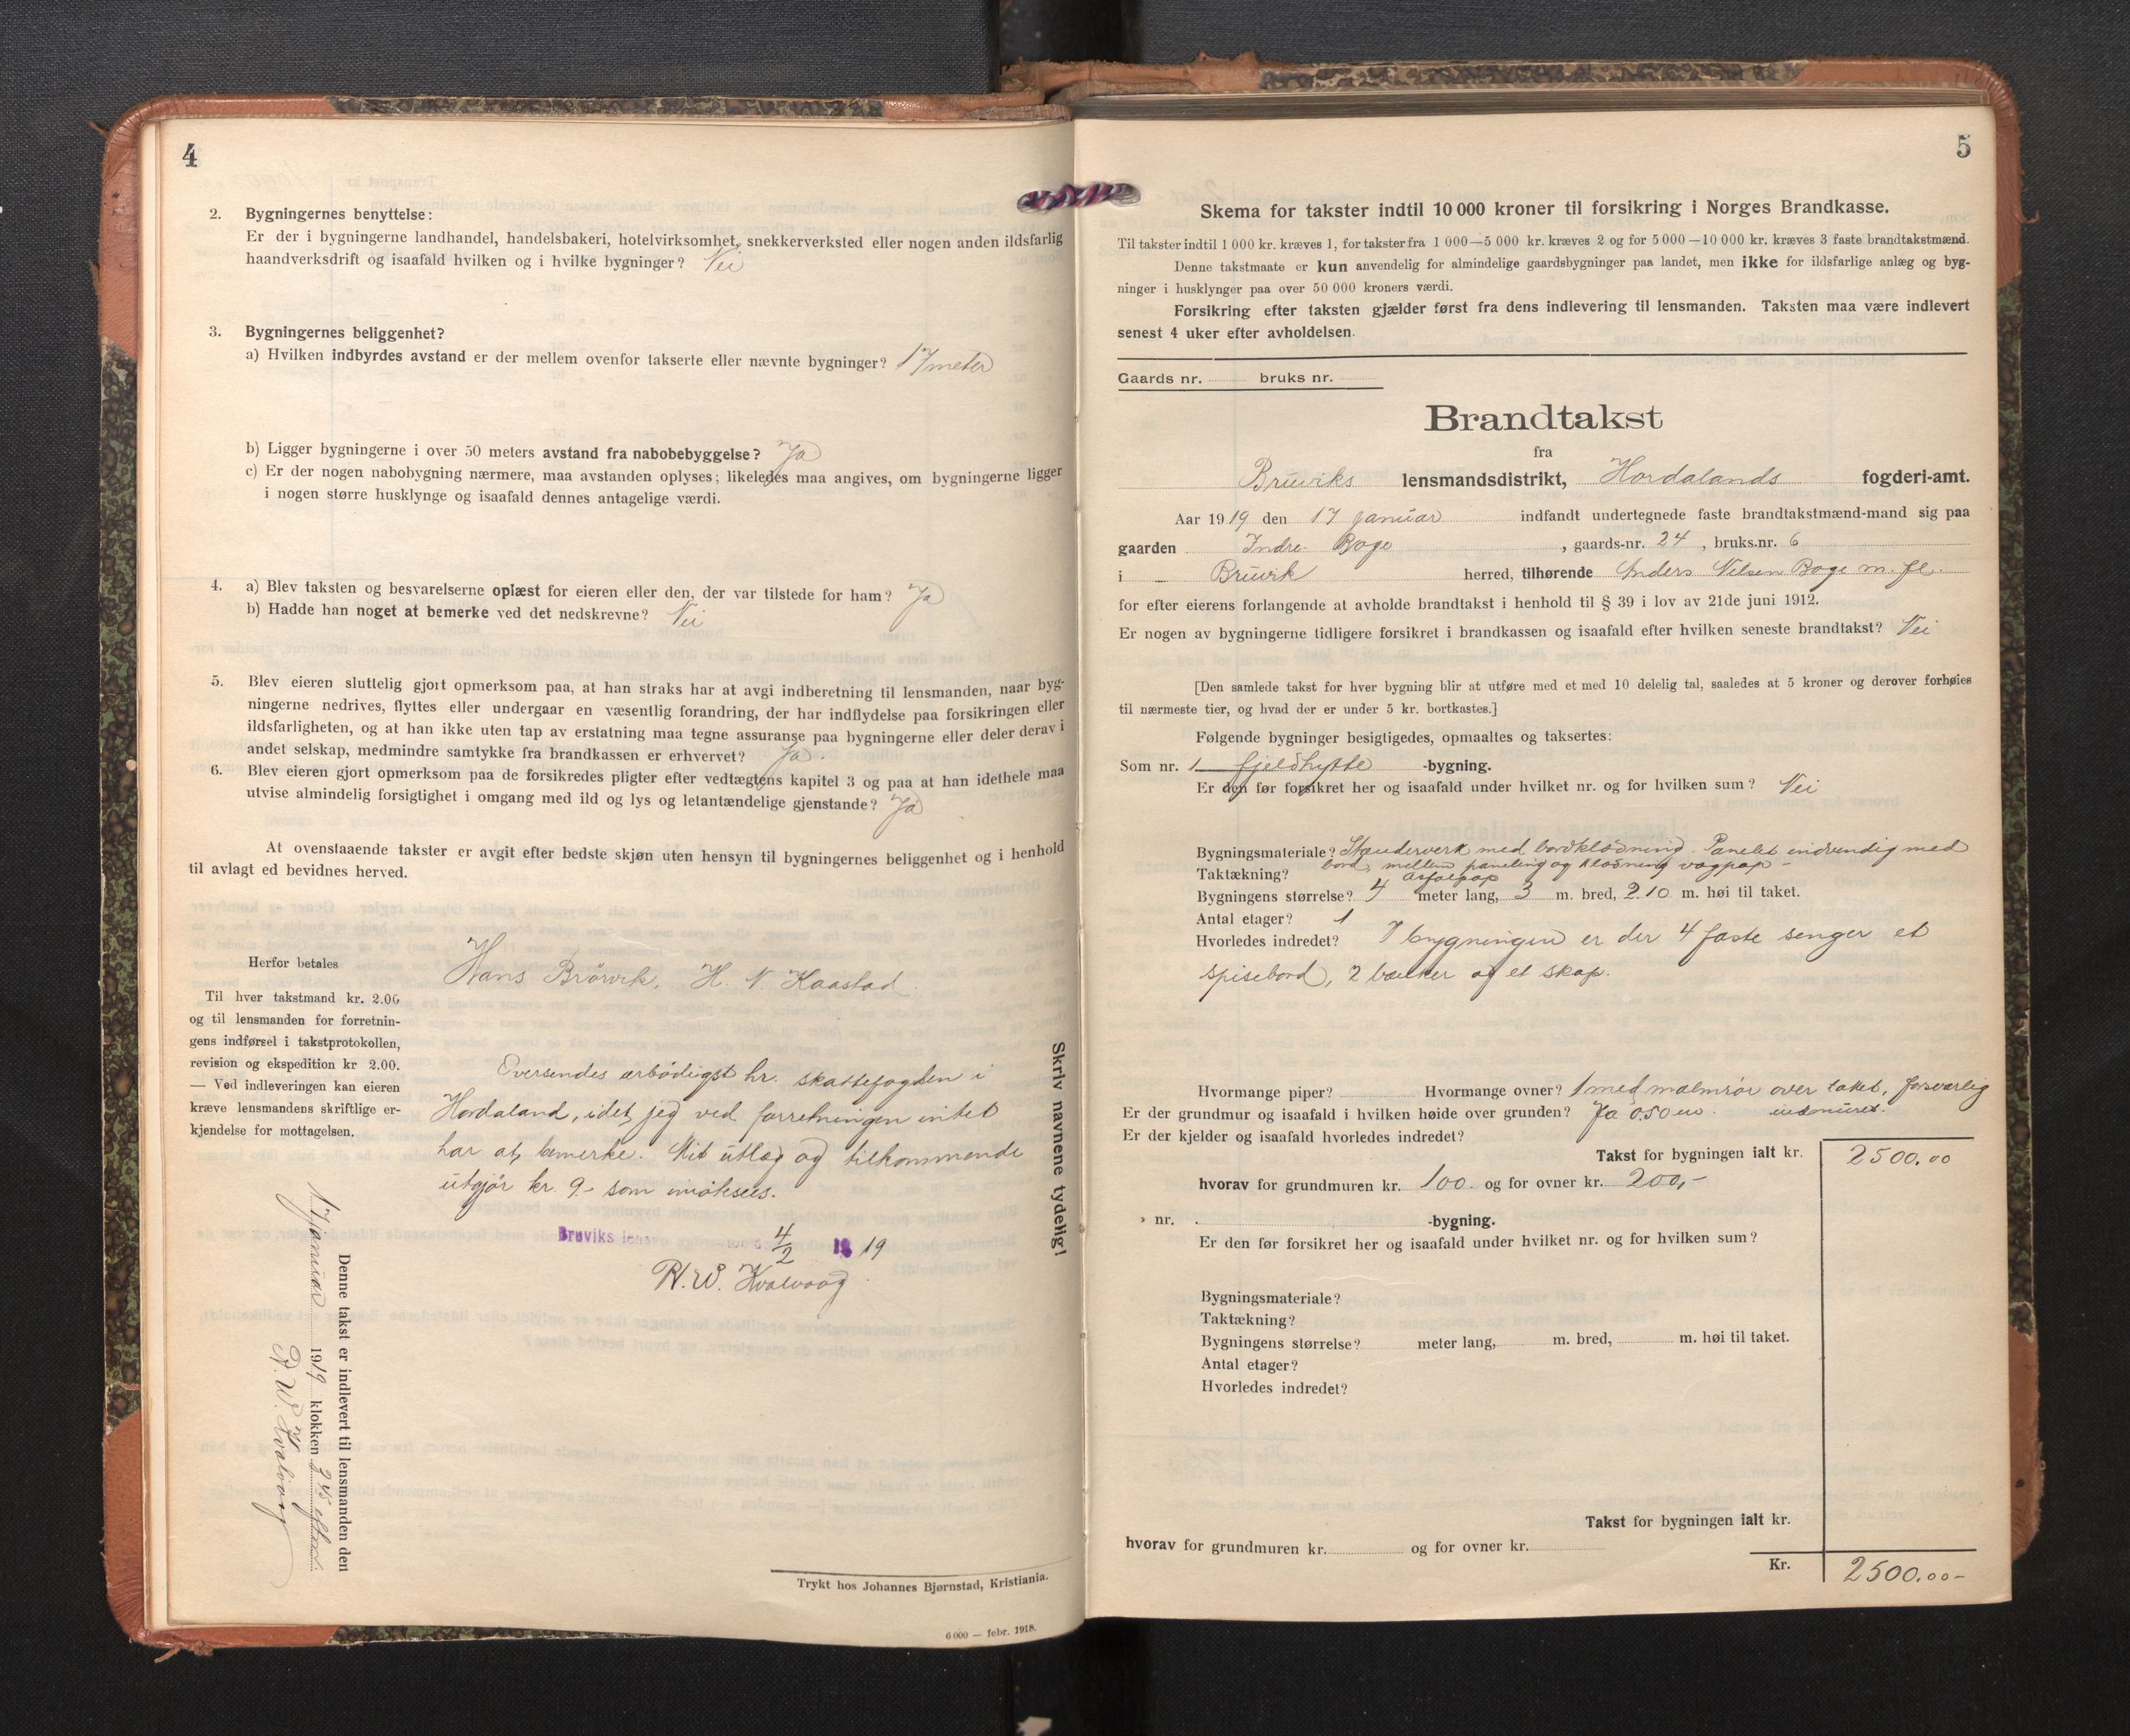 4
2. Bygningernes benyttelse:
Er der i bygningerne landhandel, handelsbakeri, hotelvirksomhet, snekkerverksted eller nogen anden ildsfarlig
haandverksdrift og isaafald hvilken og i hvilke bygninger? Nei
3. Bygningernes beliggenhet?
a) Hvilken indbyrdes avstand er der mellem ovenfor takserte eller nævnte bygninger? 17 meter
b) Ligger bygningerne i over 50 meters avstand fra nabobebyggelse? Ja
c) Er der nogen nabobygning nærmere, maa avstanden oplyses; likeledes maa angives, om bygningerne ligger
i nogen større husklynge og isaafald dennes antagelige værdi.
4. a) Blev taksten og besvarelserne oplæst for eieren eller den, der var tilstede for ham? Ja
b) Hadde han noget at bemerke ved det nedskrevne? Nei
5. Blev eieren sluttelig gjort opmerksom paa, at han straks har at avgi indberetning til lensmanden, naar byg-
ningerne nedrives, flyttes eller undergaar en væsentlig forandring, der har indflydelse paa forsikringen eller
ildsfarligheten, og at han ikke uten tap av erstatning maa tegne assuranse paa bygningerne eller deler derav i
andet selskap, medmindre samtykke fra brandkassen er erhvervet? Ja.
6. Blev eieren gjort opmerksom paa de forsikredes pligter efter vedtægtens kapitel 3 og paa at han idethele maa
utvise almindelig forsigtighet i omgang med ild og lys og letantændelige gjenstande? Ja
At ovenstaaende takster er avgit efter bedste skjøn uten hensyn til bygningernes beliggenhet og i henhold
til avlagt ed bevidnes herved.
Hans Brørvik, H. N. Kaastad
Herfor betales
Til hver takstmand kr. 2.00
og til lensmanden for forretnin-
gens indførsel i takstprotokollen,
revision og ekspedition kr 2.00.
— Ved indleveringen kan eieren
kræve lensmandens skriftlige er-
kjendelse for mottagelsen.
Oversendes ærbödigst hr. skattefogden i
Hordaland, idet jeg ved forretningen intet
har at bemerke. Mit utlæg og tilkommende
utgjör kr. 9.- som imøtesees.
Bruviks 4/2 19 19
R. W. Kvalvaag
Skriv navnene tydelig!
Denne takst er indlevert til lensmanden den
januar 1919 klokken 3 45 efterm.
R. W. Kvalvaag
Trykt hos Johannes Bjørnstad, Kristiania.
6 000 — febr. 1918.
5
Skema for takster indtil 10 000 kroner til forsikring i Norges Brandkasse.
Til takster indtil 1 000 kr. kræves 1, for takster fra 1 000—5 000 kr. kræves 2 og for 5 000—10 000 kr. kræves 3 faste brandtakstmænd.
Denne takstmaate er kun anvendelig for almindelige gaardsbygninger paa landet, men ikke for ildsfarlige anlæg og byg-
ninger i husklynger paa over 50 000 kroners værdi.
Forsikring efter taksten gjælder først fra dens indlevering til lensmanden. Taksten maa være indlevert
senest 4 uker efter avholdelsen.
Gaards nr. bruks nr.
Brandtakst
fra
Bruviks lensmandsdistrikt, Hordalands fogderi-amt.
Aar 1919 den 17 januar indfandt undertegnede faste brandtakstmænd-mand sig paa
gaarden Indre Boge, gaards-nr. 24, bruks.nr. 6
i Bruvik herred, tilhørende Anders Nilsen Boge m. fl.
for efter eierens forlangende at avholde brandtakst i henhold til § 39 i lov av 21de juni 1912.
Er nogen av bygningerne tidligere forsikret i brandkassen og isaafald efter hvilken seneste brandtakst? Nei
[Den samlede takst for hver bygning blir at utføre med et med 10 delelig tal, saaledes at 5 kroner og derover forhøies
til nærmeste tier, og hvad der er under 5 kr. bortkastes.]
Følgende bygninger besigtigedes, opmaaltes og taksertes:
Som nr. 1 fjeldhytte -bygning.
Er den før forsikret her og isaafald under hvilket nr. og for hvilken sum? Nei
Bygningsmateriale? Stenderverk med bordklædning. Panelet indvendig med
bord, mellem paneling og klædning vagpap -
Taktækning? Asfalpap
Bygningens størrelse? 4 meter lang, 3 m. bred, 2.10 m. høi til taket.
Antal etager? 1
Hvorledes indredet? I bygningen er der 4 faste senger et
spisebord, 2 bænker og et skap.
Hvormange piper? Hvormange ovner? 1 med malmrör over taket, forsvarlig
indmuret.
Er der grundmur og isaafald i hvilken høide over grunden? Ja 0.50 m.
Er der kjelder og isaafald hvorledes indredet?
Takst for bygningen ialt kr. 2500.00
hvorav for grundmuren kr. 100.- og for ovner kr. 200,-
» nr. -bygning.
Er den før forsikret her og isaafald under hvilket nr. og for hvilken sum?
Bygningsmateriale?
Taktækning?
Bygningens størrelse? meter lang, m. bred, m. høi til taket.
Antal etager?
Hvorledes indredet?
Takst for bygningen ialt kr.
hvorav for grundmuren kr. og for ovner kr.
Kr. 2500.00-